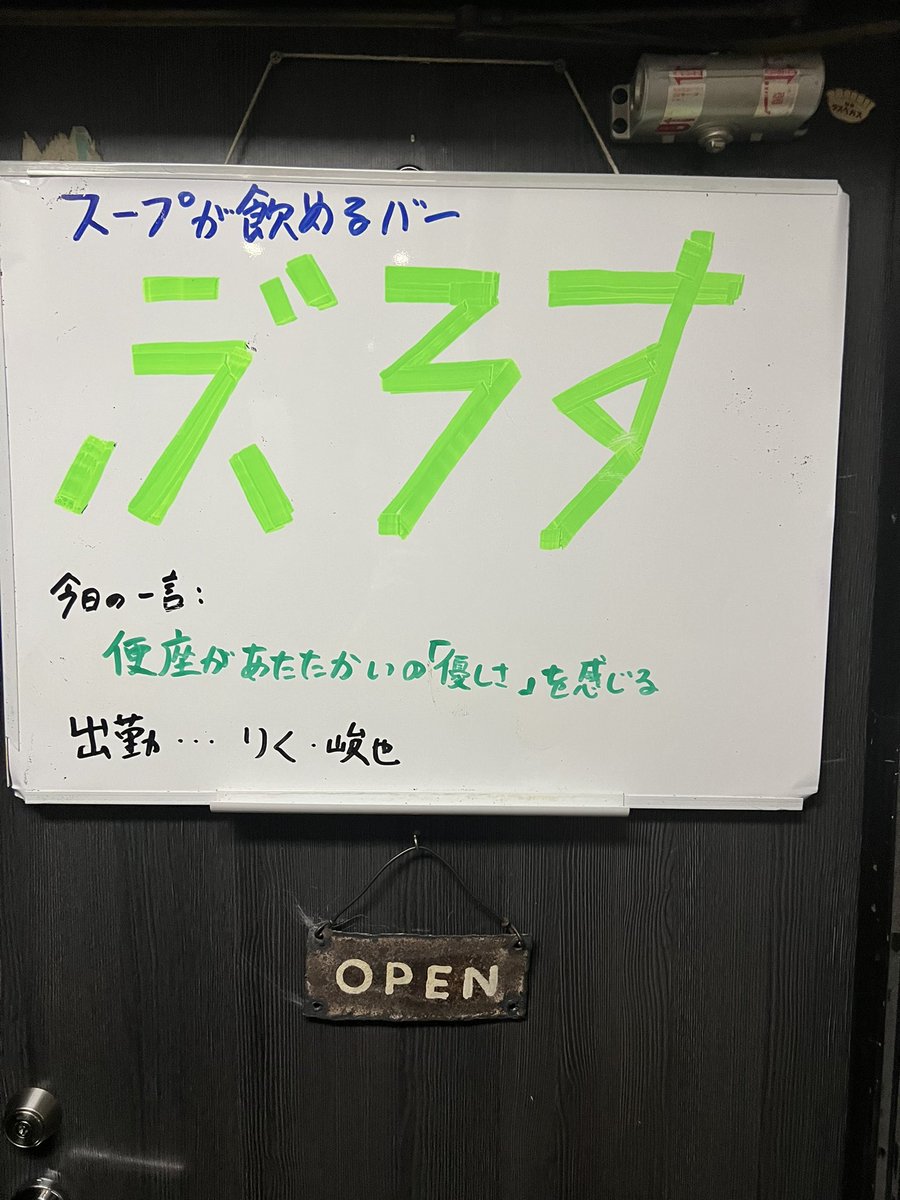 スープが飲めるバー
ぶろす
今日の一言:
便座があたたかいの「優しさ」を感じる
出勤… りく・峻也
OPEN